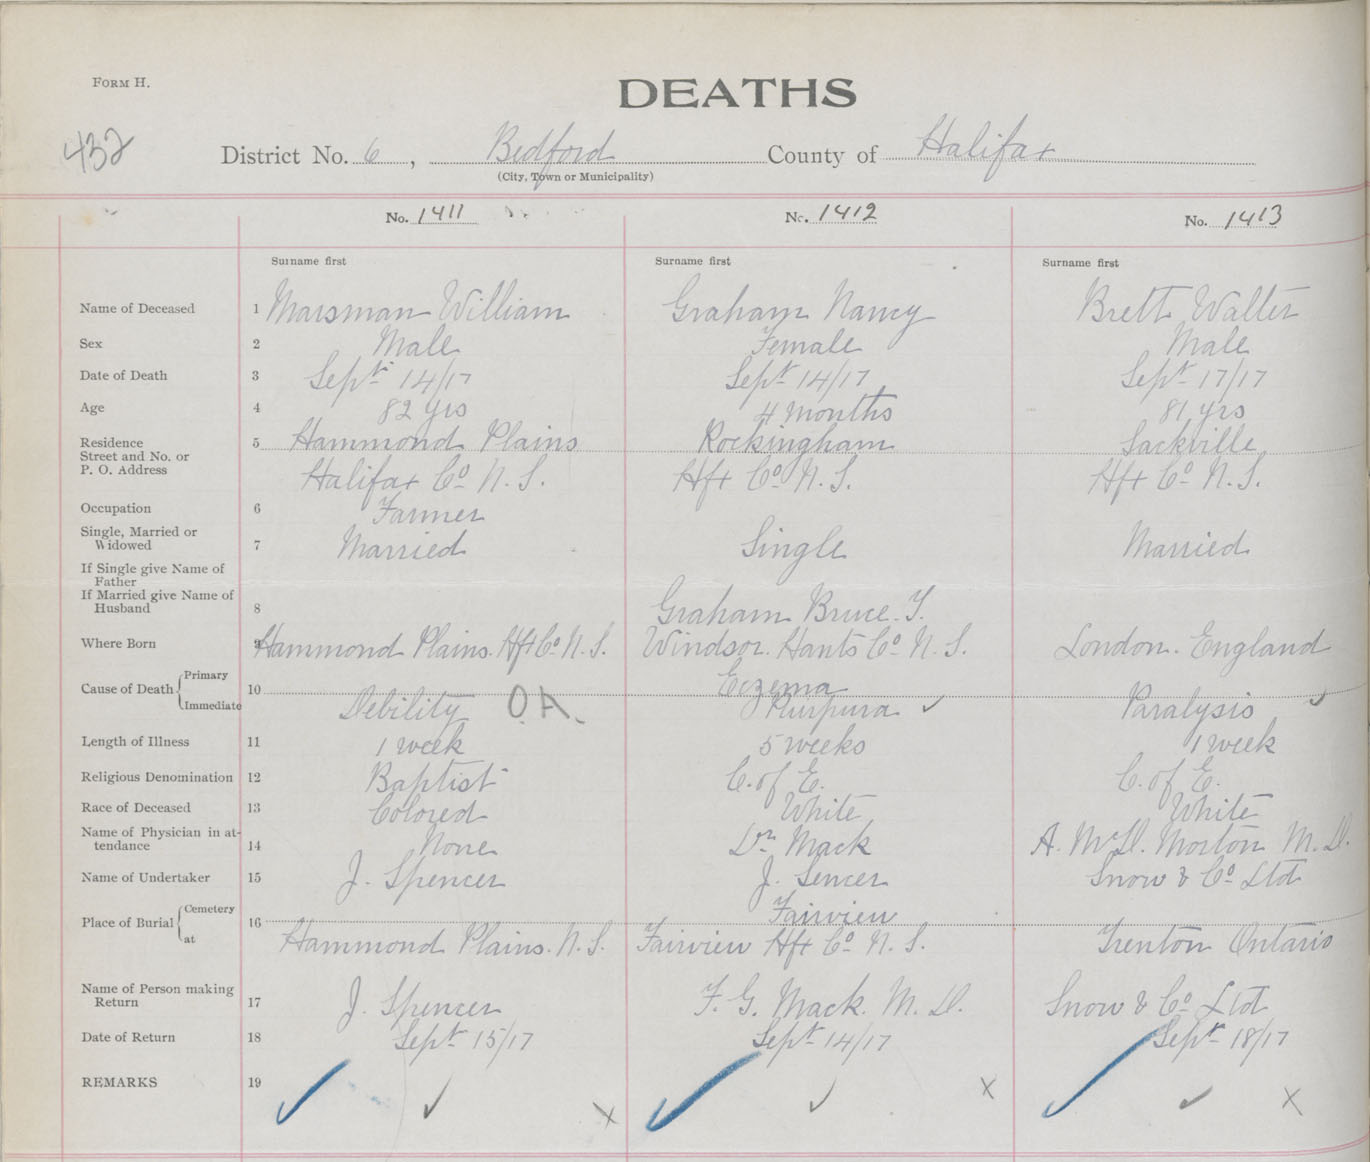 FORM H.
DEATHS
432
District No. 6, Bedford County of Halifax
(City, Town or Municipality)
No. 1411 No. 1412 No. 1413
Surname first Surname first Surname first
Name of Deceased 1 Marsman William Graham Nancy Brett Walter
Sex 2 Male Female Male
Date of Death 3 Sept 14/17 Sept 14/17 Sept 17/17
Age 4 82 yrs 4 months 81 yrs
Residence 5 Hammond Plains Rockingham Sackville
Street and No. or
P. O. Address Halifax Co N. S. Hfx Co N. S. Hfx Co N. S.
Occupation 6 Farmer
Single, Married or
Widowed 7 Married Single Married
If Single give Name of
Father
If Married give Name of
Husband 8 Graham Bruce. F.
Where Born 9 Hammond Plains. Hfx Co N. S. Windsor. Hants Co N. S. London. England
Cause of Death Primary 10 Eczema
Immediate Debility O.A. Purpura ✓ Paralysis ✓
Length of Illness 11 1 week 5 weeks 1 week
Religious Denomination 12 Baptist C. of E. C. of E.
Race of Deceased 13 Colored White White
Name of Physician in at-
tendance 14 None Dr Mack A. McD. Morton M. D.
Name of Undertaker 15 J. Spencer J. Sencer Snow & Co Ltd
Place of Burial Cemetery 16 Fairview
at Hammond Plains. N. S. Fairview Hfx Co N. S. Trenton Ontario
Name of Person making
Return 17 J. Spencer F. G. Mack. M. D. Snow & Co Ltd
Date of Return 18 Sept 15/17 Sept 14/17 Sept 18/17
REMARKS 19 ✓ ✓ x ✓ ✓ x ✓ ✓ x